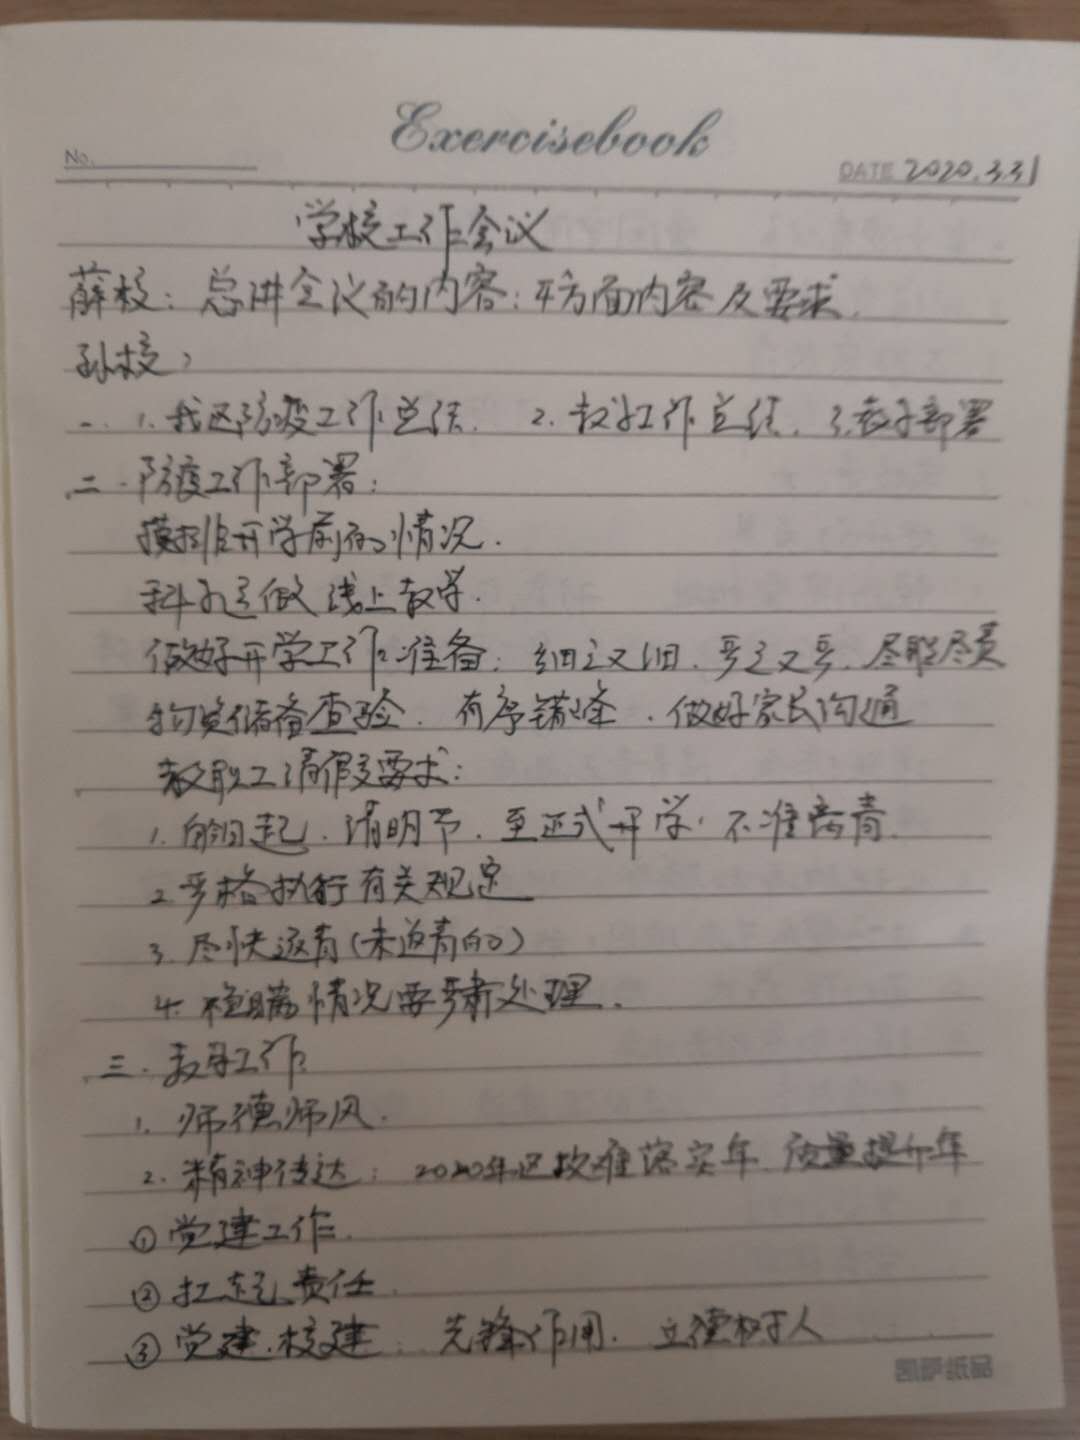 Exercisebook
No.
DATE 2020.3.31
学校工作会议
薛校：总讲会议的内容：平方面内容及要求.
孙校：
一. 1. 我区防疫工作总结. 2. 教学工作总结. 3. 部署
二. 防疫工作部署：
摸排开学前的情况.
科学做线上教学.
做好开学工作准备：细之又细. 严之又严. 尽职尽责
物资储备查验. 有序错峰. 做好家长沟通
教职工请假要求：
1. 即日起. 清明节. 至正式开学. 不准离青.
2. 严格执行有关规定
3. 尽快返青(未返青的)
4. 隐瞒情况要严肃处理.
三. 教育工作
1. 师德师风.
2. 精神传达：2020年是攻难落实年. 质量提升年
① 党建工作.
② 扛起责任.
③ 党建. 校建：先锋作用. 立德树人
品纸唔语